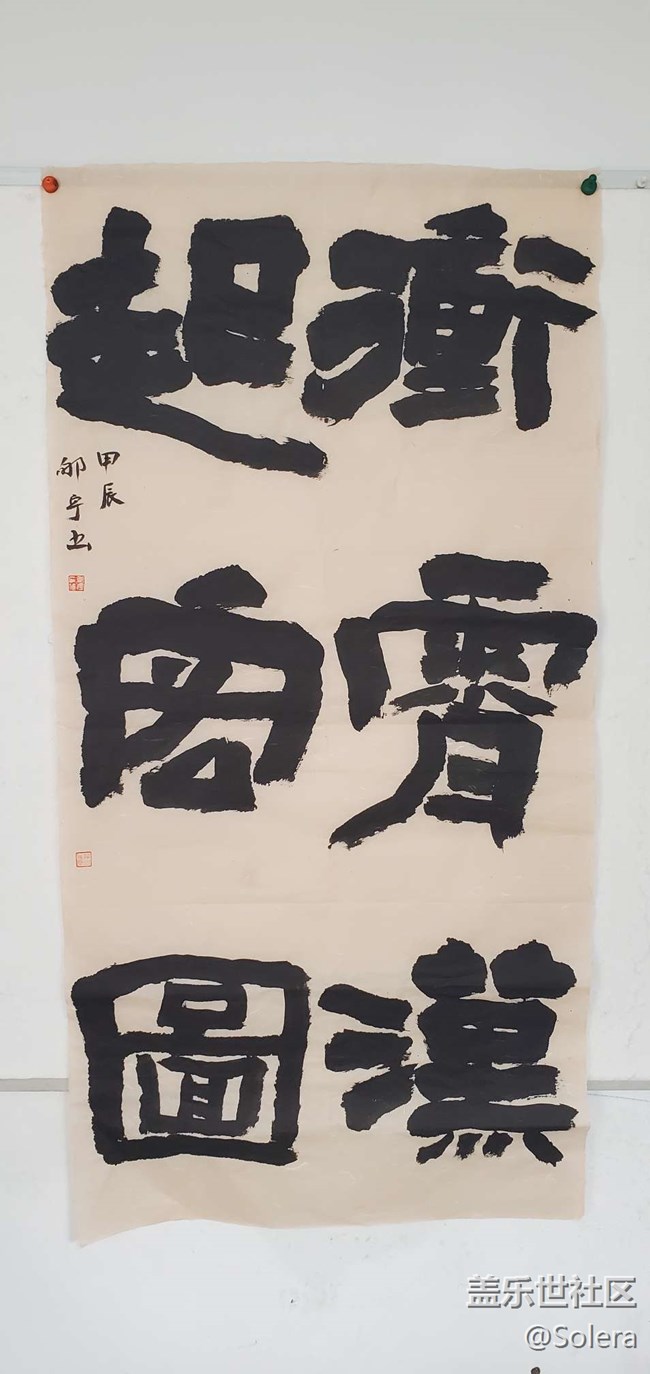 衝霄漢
起宏圖
甲辰
书
盖乐世社区
@Solera